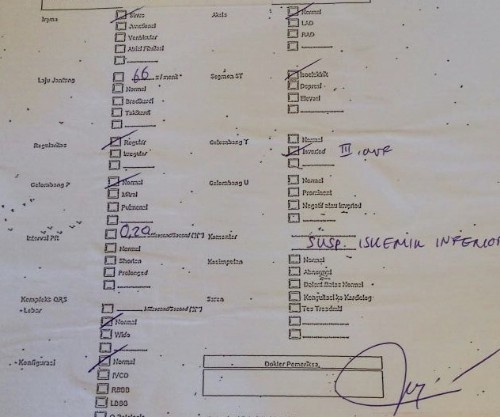 Irama Sinus Aksis Normal
Junctional LAD
Ventrikular RAD
Atrial Fibrilasi
Laju Jantung 66 x/menit Segmen ST Isoelektrik
Normal Depresi
Bradikardi Elevasi
Takikardi
Regularitas Regular Gelombang T Normal
Irregular Inverted III, aVF
Gelombang P Normal Gelombang U Normal
Mitral Prominent
Pulmonal Negatif atau Inverted
Interval PR 0,20 Komentar SUSP. ISKEMIK INFERIOR
Normal Kesimpulan Normal
Shorten Abnormal
Prolonged Dalam Batas Normal
Kompleks QRS Saran Konsultasi ke Kardiolog
- Lebar Tes Treadmill
Normal
Wide
- Konfigurasi Normal Dokter Pemeriksa,
IVCD
RBBB
LBBB